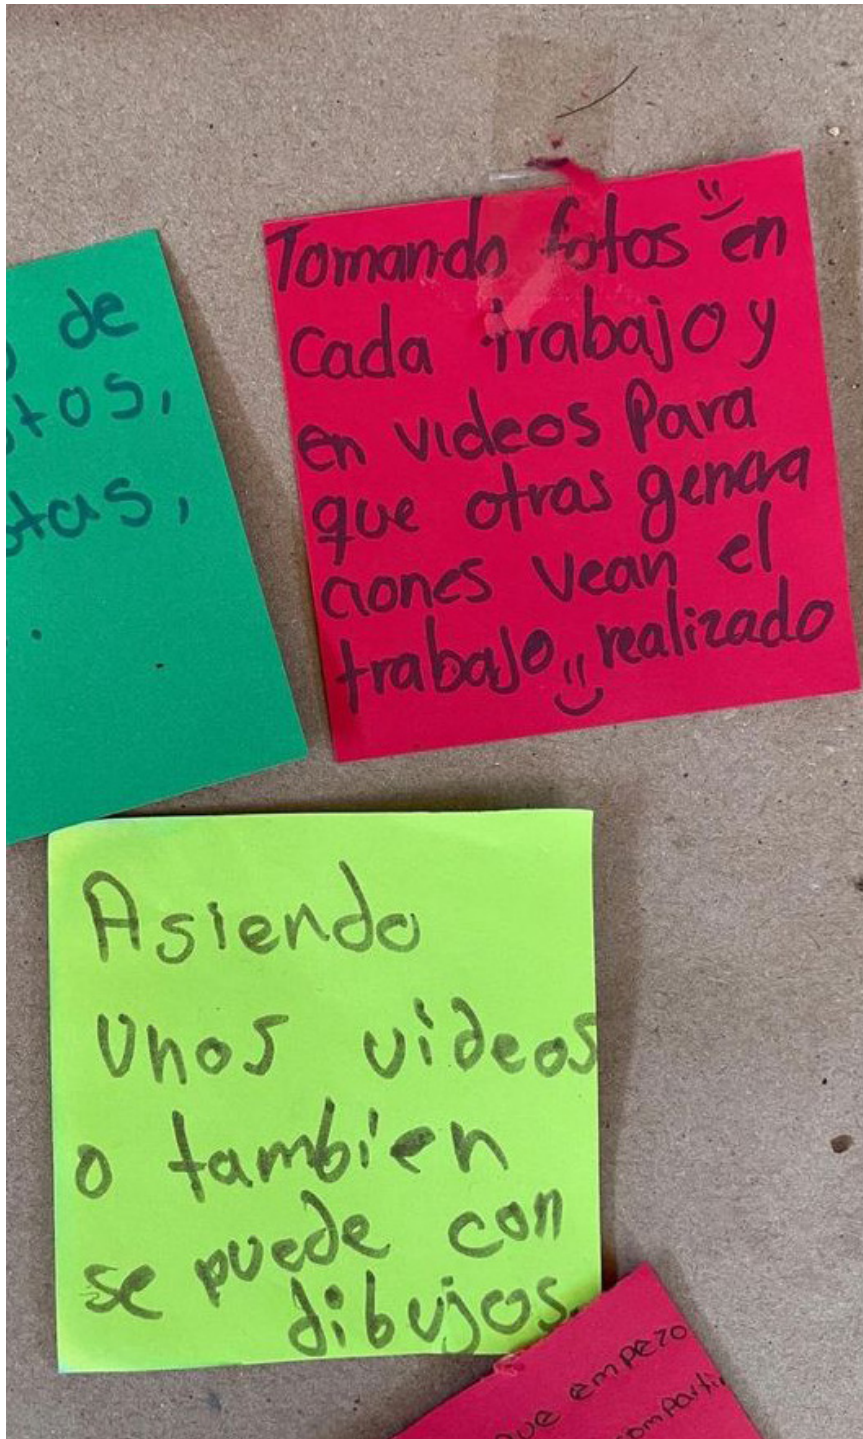 de
Tomando fotos en
cada trabajo y
en videos Para
que otras genera
ciones vean el
trabajo realizado
Asiendo
Unos videos
o tambien
se puede con
dibujos.
que empezo